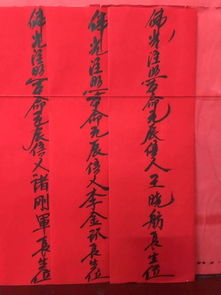 佛光注照本命元辰信人王晓舫長生位
佛光注照本命元辰信人李金環長生位
佛光注照本命元辰信人諸剛軍長生位